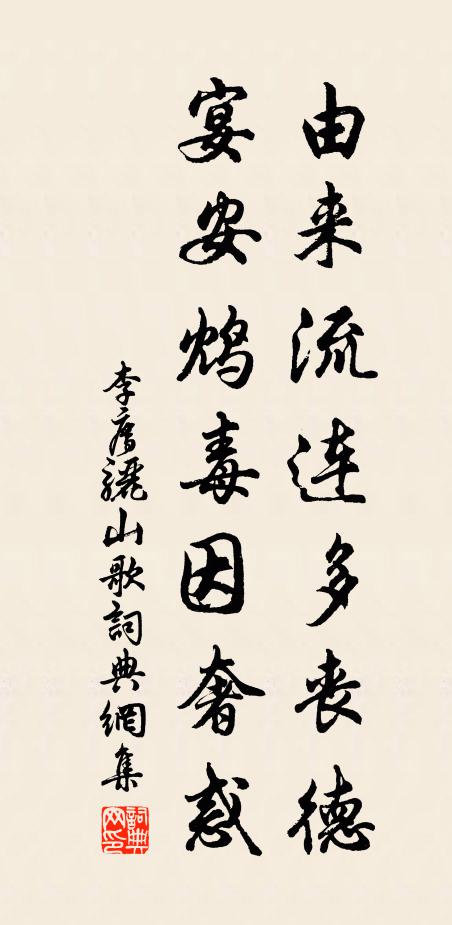 由来流连多丧德
宴安鸩毒因奢惑
李廌骊山歌词典網集
詞典网印